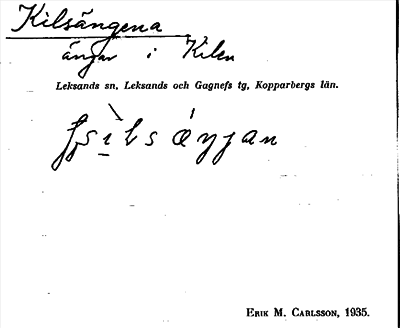 Kilsängena
ängar i Kilen
Leksands sn, Leksands och Gagnefs tg, Kopparbergs län.
ERIK M. CARLSSON, 1935.